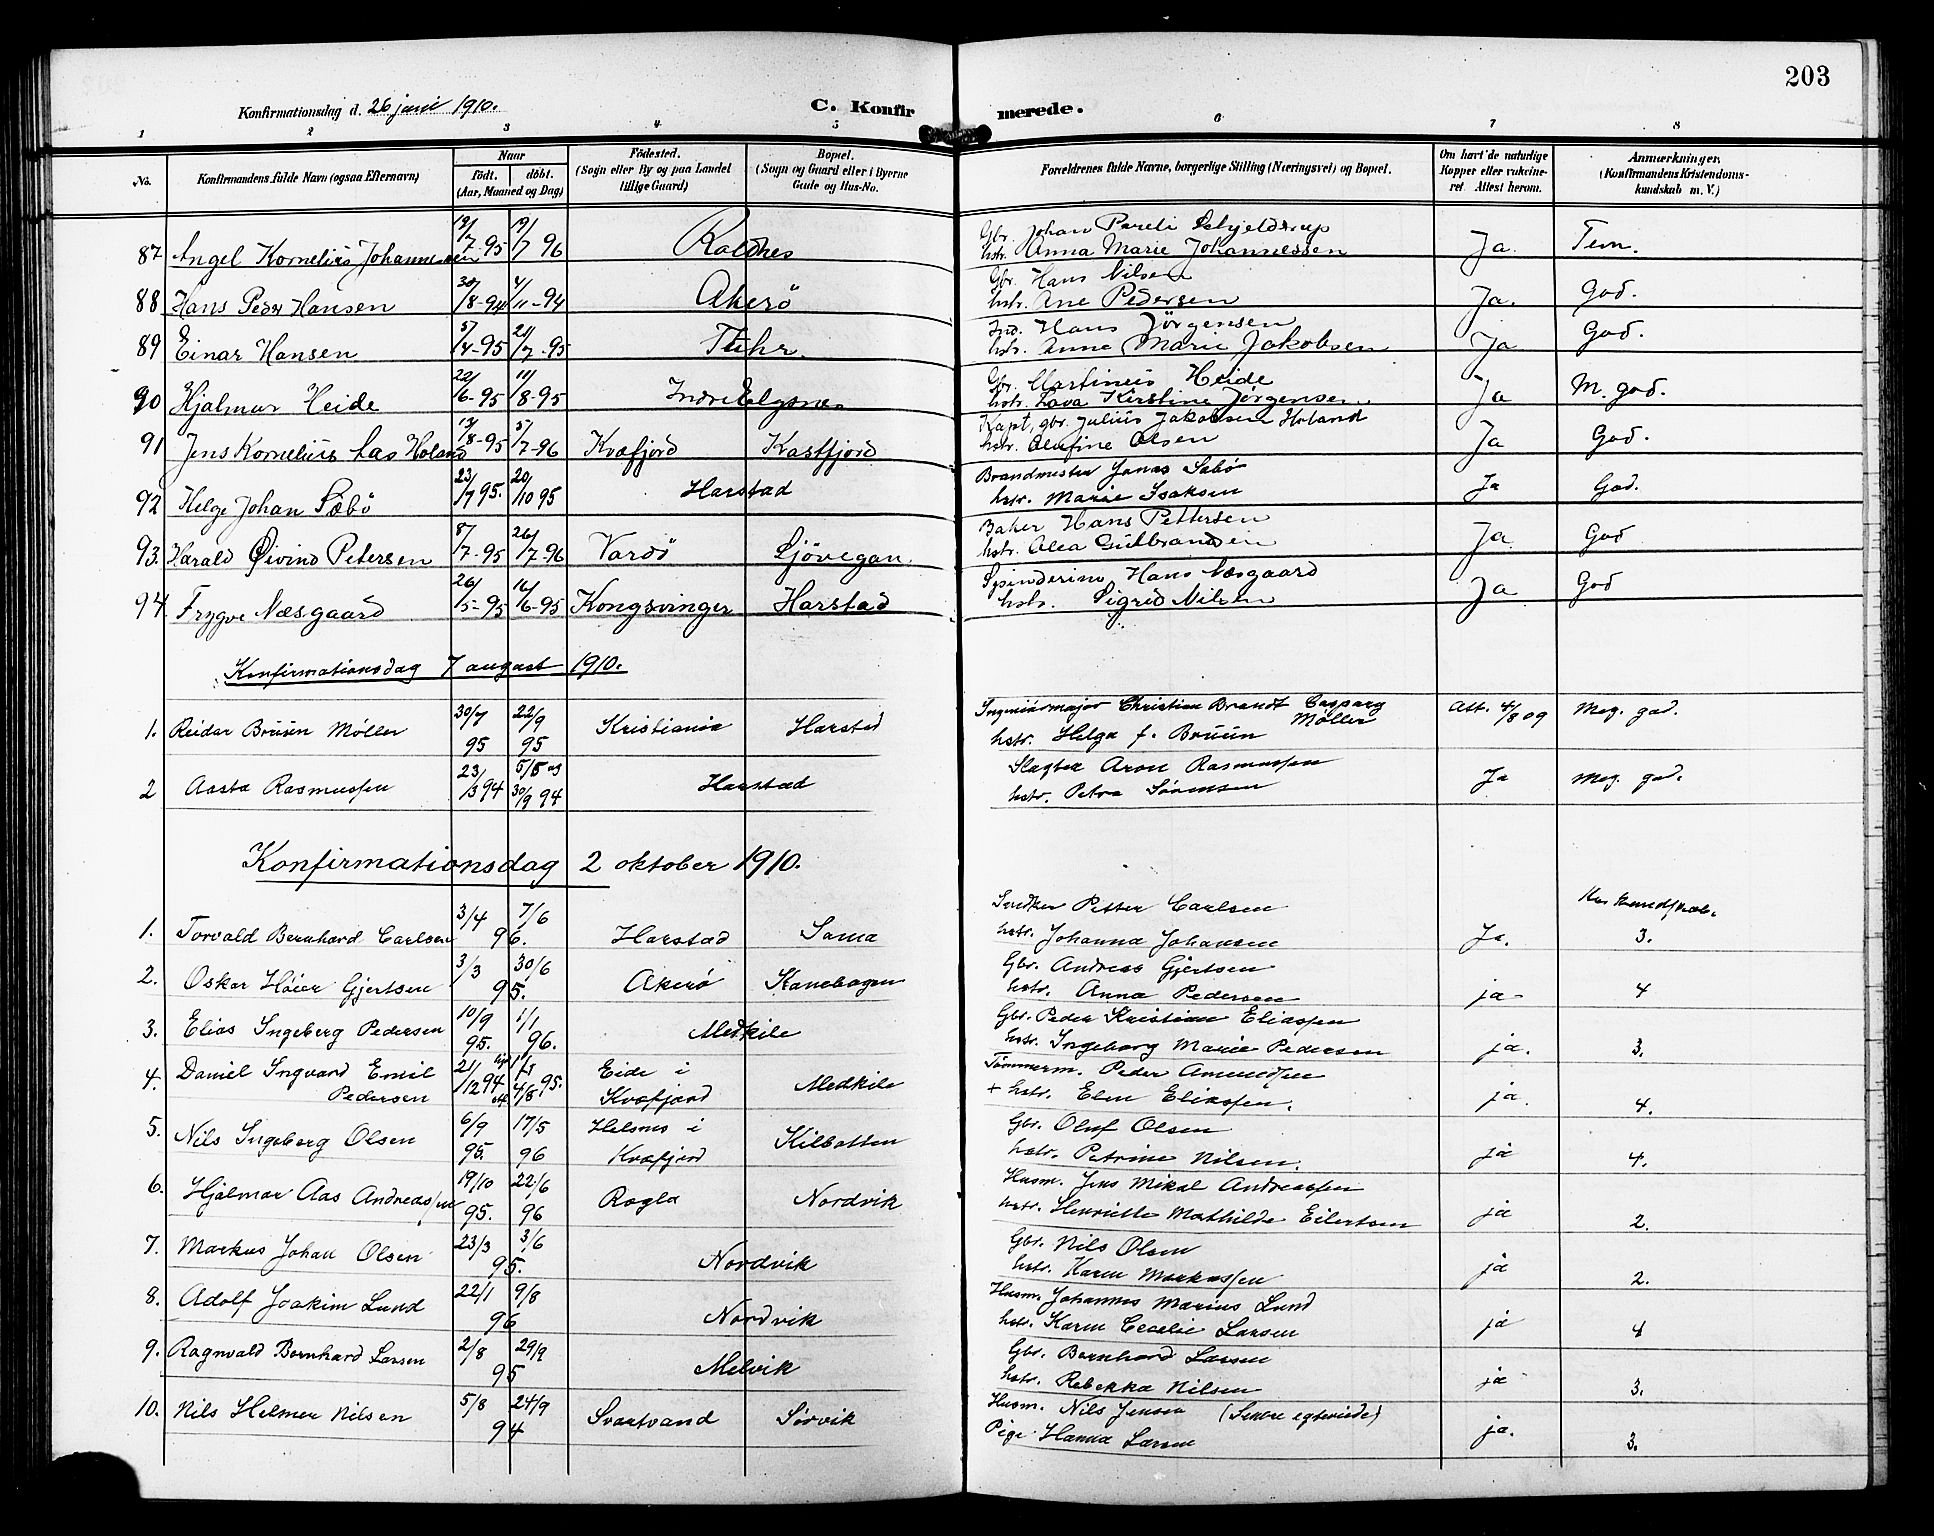 203
Konfirmationsdag d. 26 juni 1910. C. Konfirmerede.
1 2 3 4 5 6 7 8
No. Konfirmandens fulde Navn (ogsaa Efternavn) Naar födt. döbt. (Aar, Maaned og Dag) Födested. (Sogn eller By og paa Landet tillige Gaard) Bopæl. (Sogn og Gaard eller i Byerne Gade og Hus-No. Forældrenes fulde Navne, borgerlige Stilling (Næringsvei) og Bopæl. Om havt de naturlige Kopper eller vakcineret. Attest herom. Anmærkninger. (Konfirmandens Kristendomskundskab m. V.)
87 Angel Kornelius Johannessen 19/7-95 19/7 96 Roldnes Gbr. Johan Pareli Schjelderup
hstr. Anna Marie Johannessen Ja. Tem.
88 Hans Peder Hansen 30/8-94 4/11-94 Akerö Gbr. Hans Nilsen
hstr. Ane Pedersen Ja. God.
89 Einar Hansen 5/4-95 21/7-95 Ind. Hans Jörgensen
hstr. Anne Marie Jakobsen Ja God.
90 Hjalmar Heide 22/6-95 11/8-95 Indre Elgsnes Gbr. Martinus Heide
hstr. Lava Kirstine Jörgensen. Ja M. god.
91 Jens Kornelius Aas Holand 13/8-95 5/7-96 Kvæfjord Kastfjord Kapt, gbr. Julius Jakobsen Holand
hstr. Olufine Olsen Ja God.
92 Helge Johan Sæbö 23/7 95. 20/10 95 Harstad Brandmester Jonas Sæbö
hstr. Marie Isaksen Ja God.
93. Harald Øivind Petersen 8/7-95 26/7-96 Vardö Sjövegan. Baker Hans Pettersen
hstr. Olea Gulbrandsen Ja God
94. Trygve Næsgaard 26/5-95 16/6-95 Kongsvinger Harstad Spinderim Hans Næsgaard
hstr. Sigrid Nilsen Ja God
Konfirmationsdag 7 august 1910.
1. Reidar Brüün Möller 30/7 95 22/9 95 Kristiania Harstad Ingeniörmajor Christian Brandt Caspary Möller
hstr. Helga f. Brüün Att. 4/8 09 Meg. god.
2 Aasta Rasmussen 23/3 94 5/5 30/9 94 Harstad Slagter Aron Rasmussen
hstr. Petra Sörensen Ja Meg. god.
Konfirmationsdag 2 oktober 1910.
1. Torvald Bernhard Carlsen 3/4 7/6 96. Harstad Sama Snedker Petter Carlsen
hstr. Johanna Johansen Ja. 3.
2. Oskar Höier Gjertsen 3/3 30/6 95. Akerø Kanebogen Gbr. Andreas Gjertsen
hstr. Anna Pedersen ja 4
3. Elias Ingeberg Pedersen 10/9 95. 1/1 96. Medkile Gbr. Peder Kristian Eliassen
hstr. Ingeborg Marie Pedersen ja. 3.
4. Daniel Ingvard Emil Pedersen 21/12 94 4/8 95. Eide i Kvæfjord Medkile Tömmerm. Peder Amundsen
+ hstr. Elen Eliassen. ja. 4.
5. Nils Ingeberg Olsen 6/9 95. 17/5 96 Helsnes i Kvæfjord Kilbotten Gbr. Oluf Olsen
hstr. Petrine Nilsen. ja 4.
6. Hjalmar Aas Andreassen 19/10 95. 22/6 96 Rogla Nordvik Husm. Jens Mikal Andreassen
hstr. Henriette Mathilde Eilertsen ja 2.
7. Markus Johan Olsen 23/3 3/6 95. Nordvik Gbr. Nils Olsen
hstr. Karen Markussen ja 2.
8. Adolf Joakim Lund 22/1 9/8 96 Nordvik Husm. Johannes Marius Lund
hstr. Karen Cecelie Larsen ja 4
9. Ragnvald Bernhard Larsen 2/8 29/9 95 Melvik Gbr. Bernhard Larsen
hstr. Rebekka Nilsen ja 3.
10. Nils Helmer Nilsen 5/8 24/9 94 Svartvand Sörvik Husm. Nils Jensen (Senere egteviede)
Pige Hanna Larsen ja. 3.